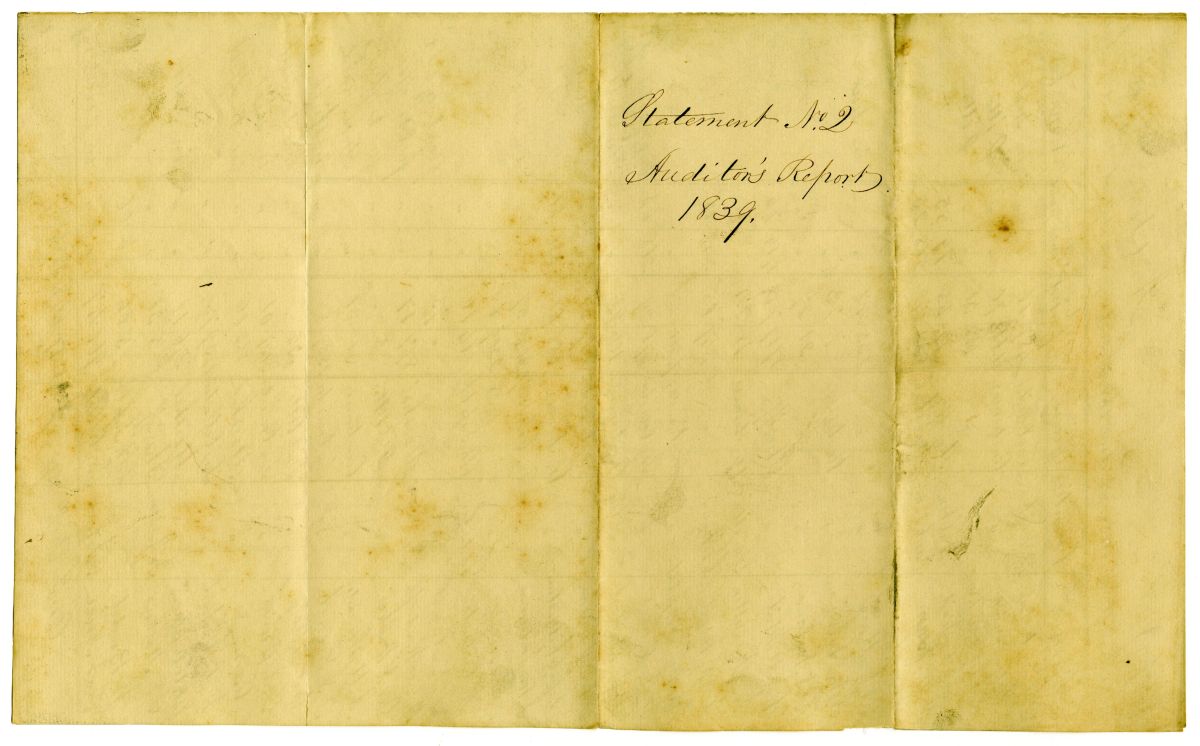 Statement No. 2
Auditor's Report
1839.